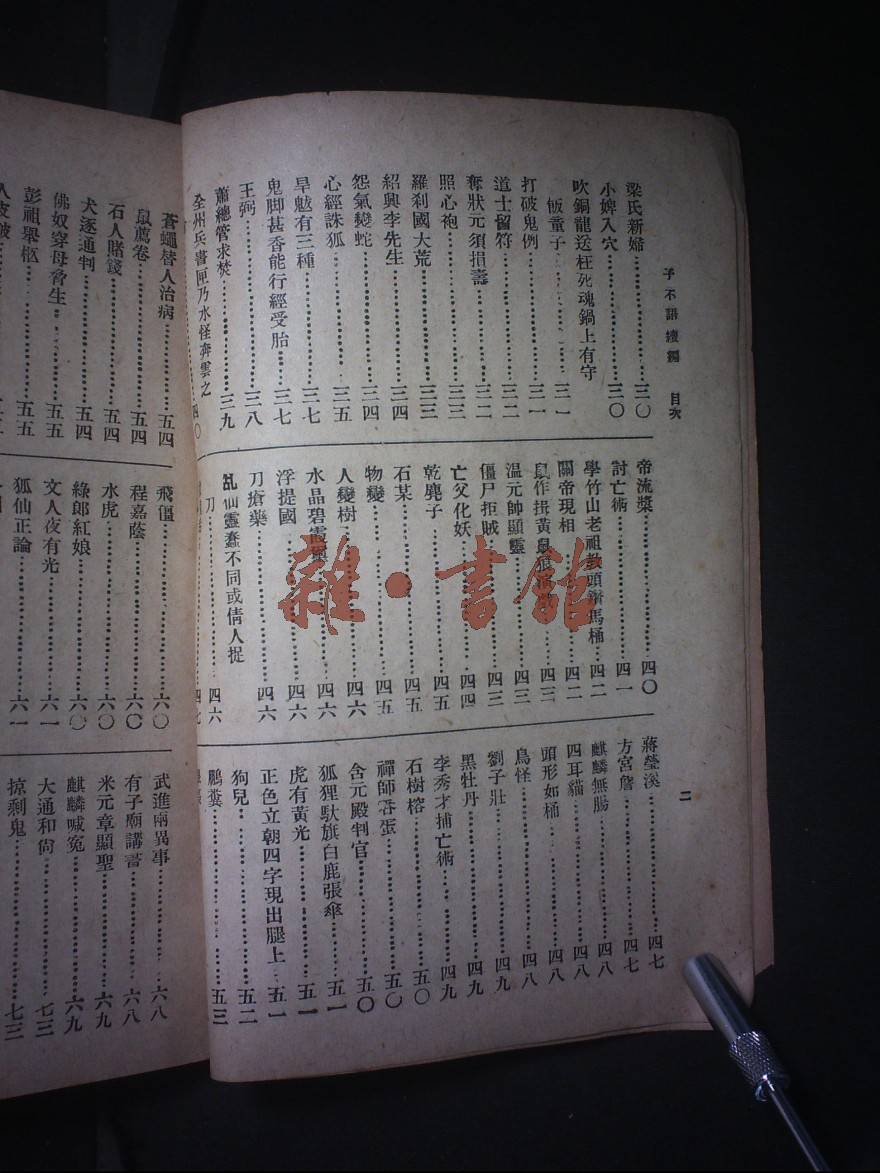 子不語續編 目次
二
梁氏新婦……三〇
小婢入穴……三〇
吹銅龍送枉死魂鍋上有守
飯童子……三一
打破鬼例……三一
道士留符……三二
奪狀元須損壽……三二
照心袍……三三
羅剎國大荒……三三
紹興李先生……三四
怨氣變蛇……三四
心經誅狐……三五
旱魃有三種……三七
鬼脚甚香能行經受胎……三七
王弼……三八
蕭總管求焚……三九
全州兵書匣乃水怪奔雲之
……四〇
帝流漿……四〇
討亡術……四一
學竹山老祖教頭鑽馬桶……四二
關帝現相……四二
鼠作揖黃鼠狼……四三
温元帥顯靈……四三
僵尸拒賊……四三
亡父化妖……四四
乾麂子……四五
石某……四五
物變……四五
人變樹……四六
水晶碧霞……四六
浮提國……四六
刀瘡藥……四六
乩仙靈蠢不同或倩人捉
刀……四六
……四七
蔣瑩溪……四七
方宮詹……四七
麒麟無腸……四八
四耳貓……四八
頭形如桶……四八
鳥怪……四八
劉子壯……四九
黑牡丹……四九
李秀才捕亡術……四九
石樹榕……五〇
禪師吞蛋……五〇
含元殿判官……五〇
狐狸馱旗白鹿張傘……五一
虎有黃光……五一
正色立朝四字現出腿上……五一
狗兒……五二
鵬糞……五三
蒼蠅替人治病……五四
鼠薦卷……五四
石人賭錢……五四
犬逐通判……五四
佛奴穿母脅生……五五
彭祖舉柩……五五
飛僵……六〇
程嘉蔭……六〇
水虎……六〇
綠郎紅娘……六〇
文人夜有光……六一
狐仙正論……六一
武進兩異事……六八
有子廟講書……六八
米元章顯聖……六九
麒麟喊冤……六九
大通和尚……七三
掠剩鬼……七三
雜·書館